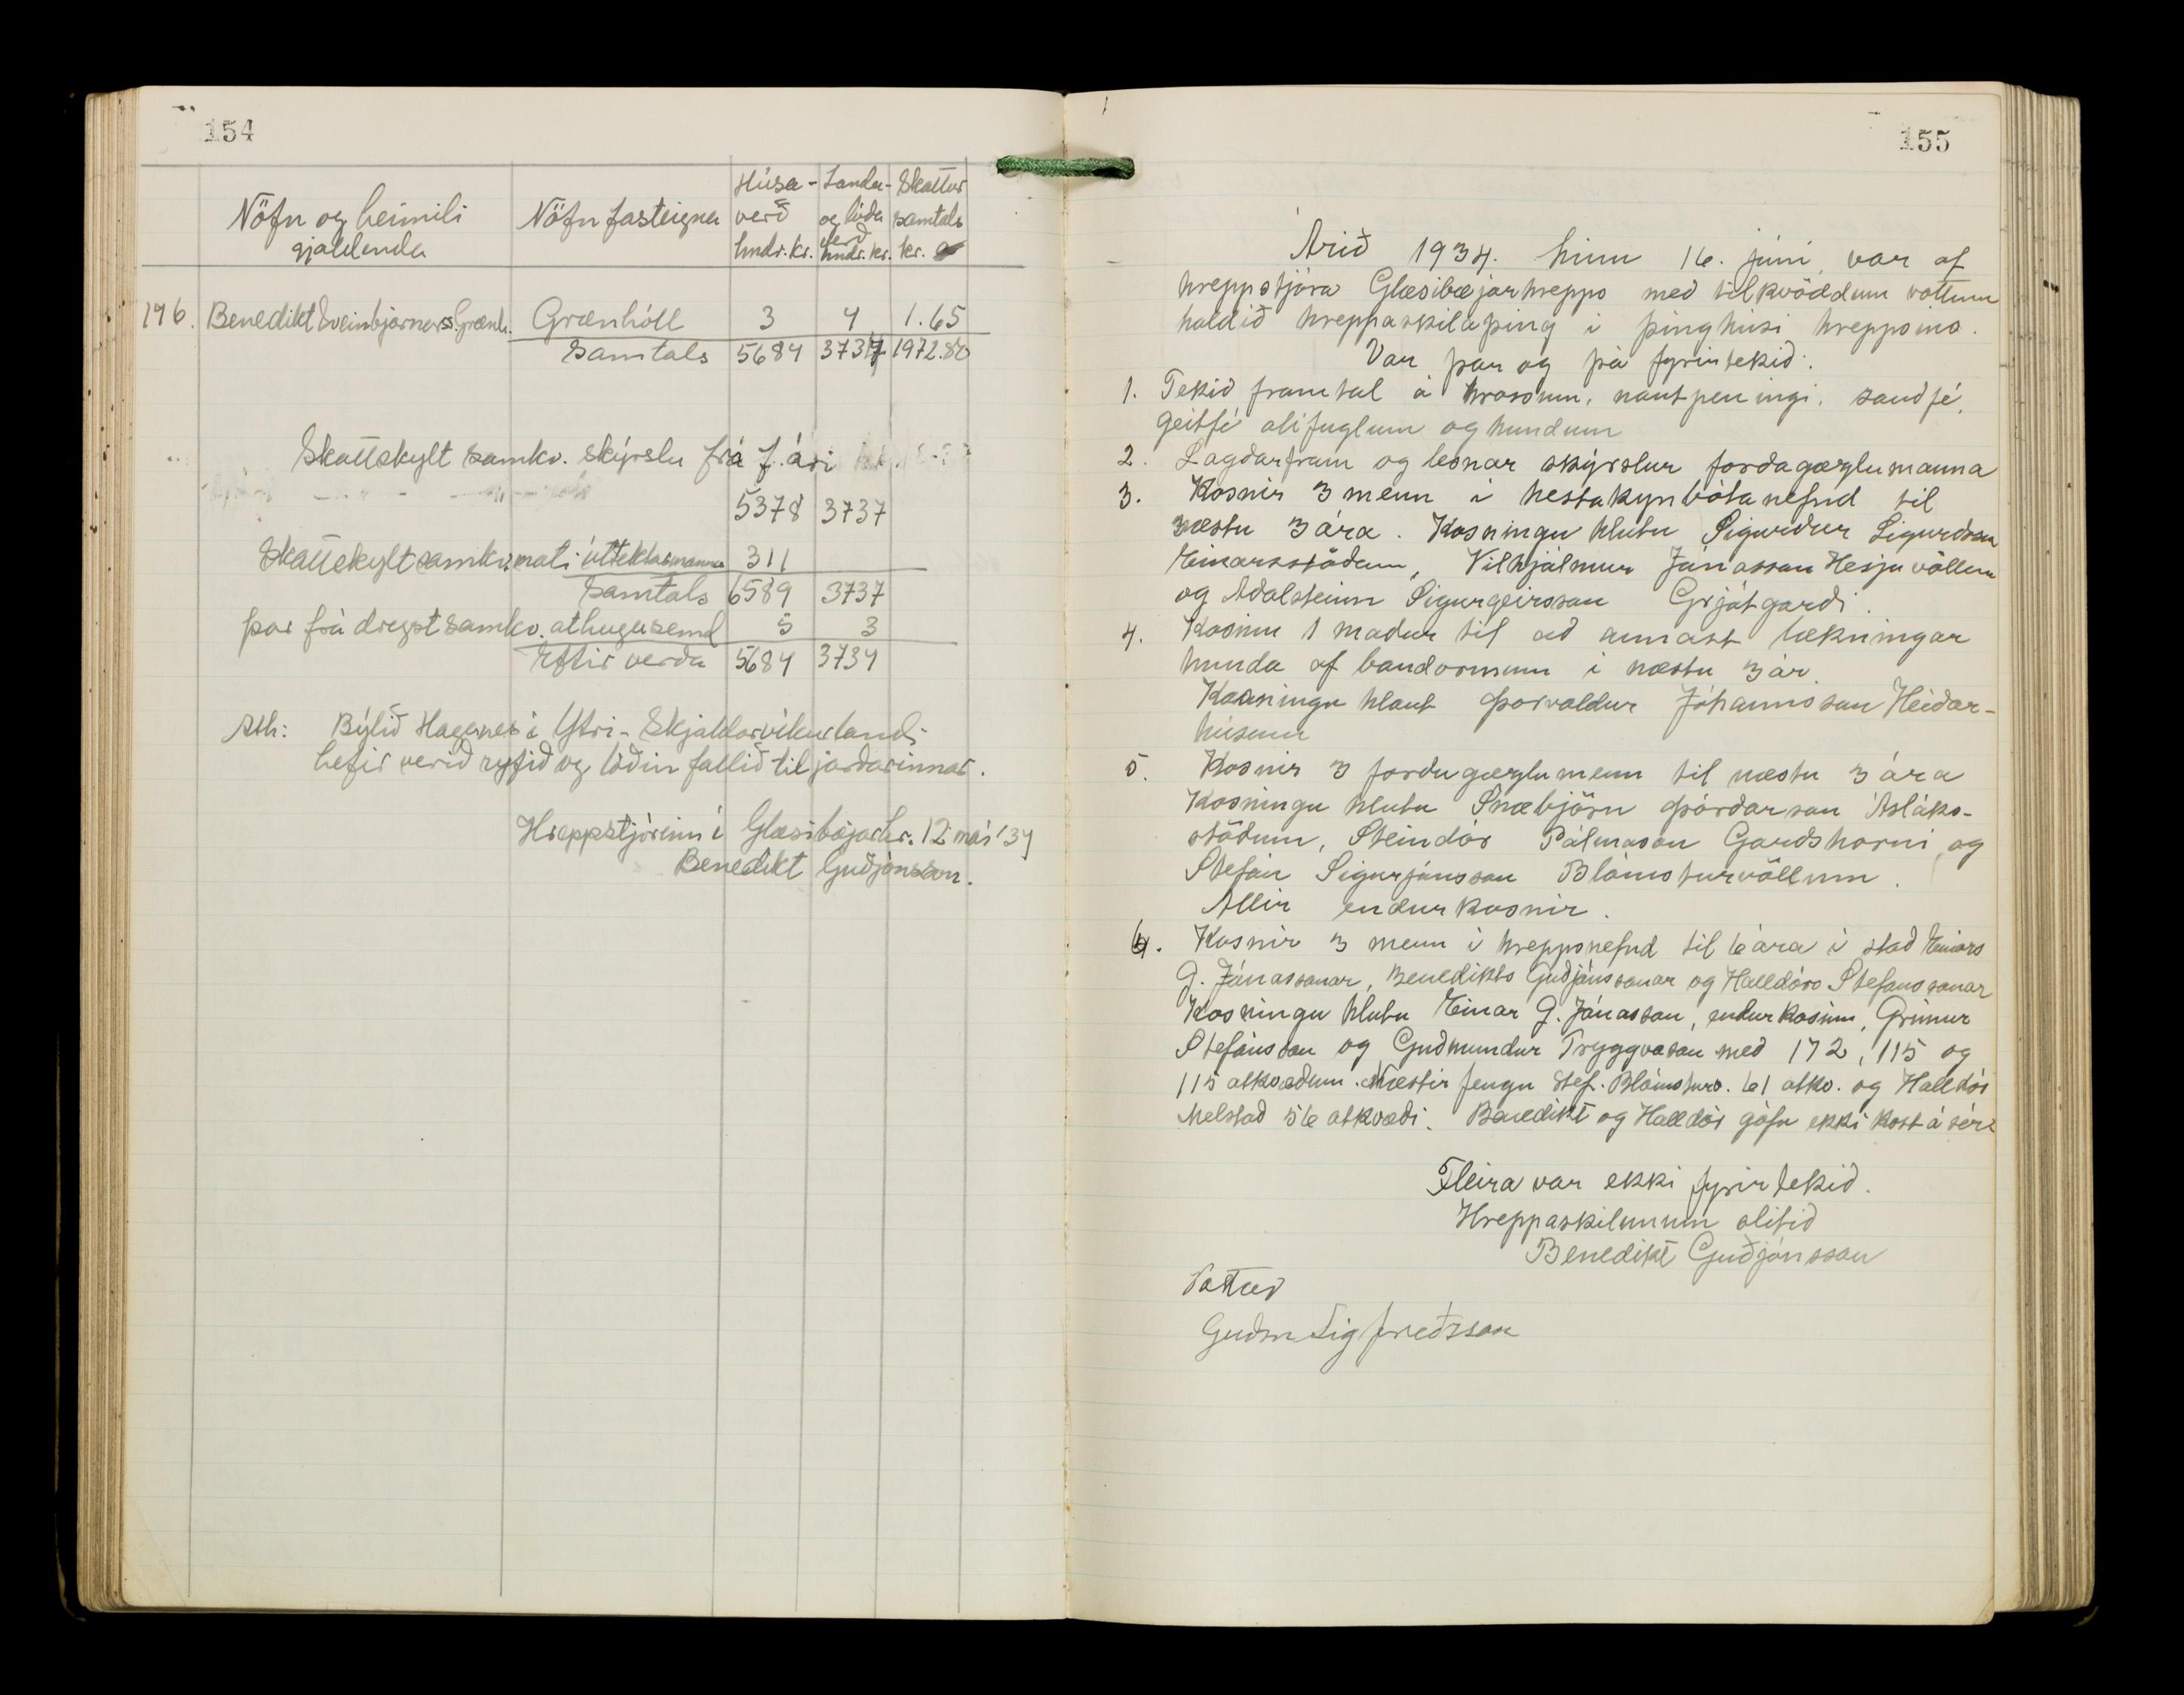 154
Nöfn og heimili gjaldenda
Nöfn fasteigna
Húsa-verð hndr. kr.
Landa- og lóða verð hndr. kr.
Skattur samtals kr.
196. Benedikt Sveinbjörnss. Grænh. Grænhóll 3 4 1.65
Samtals 5684 3737 1972.80
Skattskylt samkv. skýrslu frá f. ári
5378 3737
Skattskylt samkv. mati úttektarmanna 311
Samtals 6589 3737
þar frá dregst samkv. athugasemd 5 3
Eftir verða 5684 3734
Ath: Býlið Haganes í Ytri-Skjaldarvíkurlandi
hefir verið rifið og lóðin fallið til jarðarinnar.
Hreppstjórinn í Glæsibæjarhr. 12 maí '34
Benedikt Guðjónsson.
155
Árið 1934. hinn 16. júní var af
hreppstjóra Glæsibæjarhrepps með tilkvöddum vottum
haldið hreppaskilaþing í þinghúsi hreppsins.
Var þar og þá fyrirtekið:
1. Tekið framtal á hrossum, nautpeningi, sauðfé,
geitfé alifuglum og hundum
2. Lagðar fram og lesnar skýrslur forðagæzlumanna
3. Kosnir 3 menn í hestakynbótanefnd til
næstu 3 ára. Kosningu hlutu Sigurður Sigurðsson
Einarsstöðum, Vilhjálmur Jónasson Hesjuvöllum
og Aðalsteinn Sigurgeirsson Grjótgarði.
4. Kosinn 1 maður til að annast lækningar
hunda af bandormum í næstu 3 ár.
Kosningu hlaut Þorvaldur Jóhannsson Heiðar-
húsum
5. Kosnir 3 forðagæzlumenn til næstu 3 ára
Kosningu hlutu Snæbjörn Þórðarson Ásláks-
stöðum, Steindór Pálmason Garðshorni og
Stefán Sigurjónsson Blómsturvöllum.
Allir endurkosnir.
6. Kosnir 3 menn í hreppsnefnd til 6 ára í stað Einars
G. Jónassonar, Benedikts Guðjónssonar og Halldórs Stefánssonar
Kosningu hlutu Einar G. Jónasson, endurkosinn, Grímur
Stefánsson og Guðmundur Tryggvason með 172, 115 og
115 atkvæðum. Næstir fengu Stef. Blómsturv. 61 atkv. og Halldór
Melstað 56 atkvæði. Benedikt og Halldór gáfu ekki kost á sér
Fleira var ekki fyrirtekið.
Hreppaskilunum slitið
Benedikt Guðjónsson
Vottar
Guðm Sigfreðsson